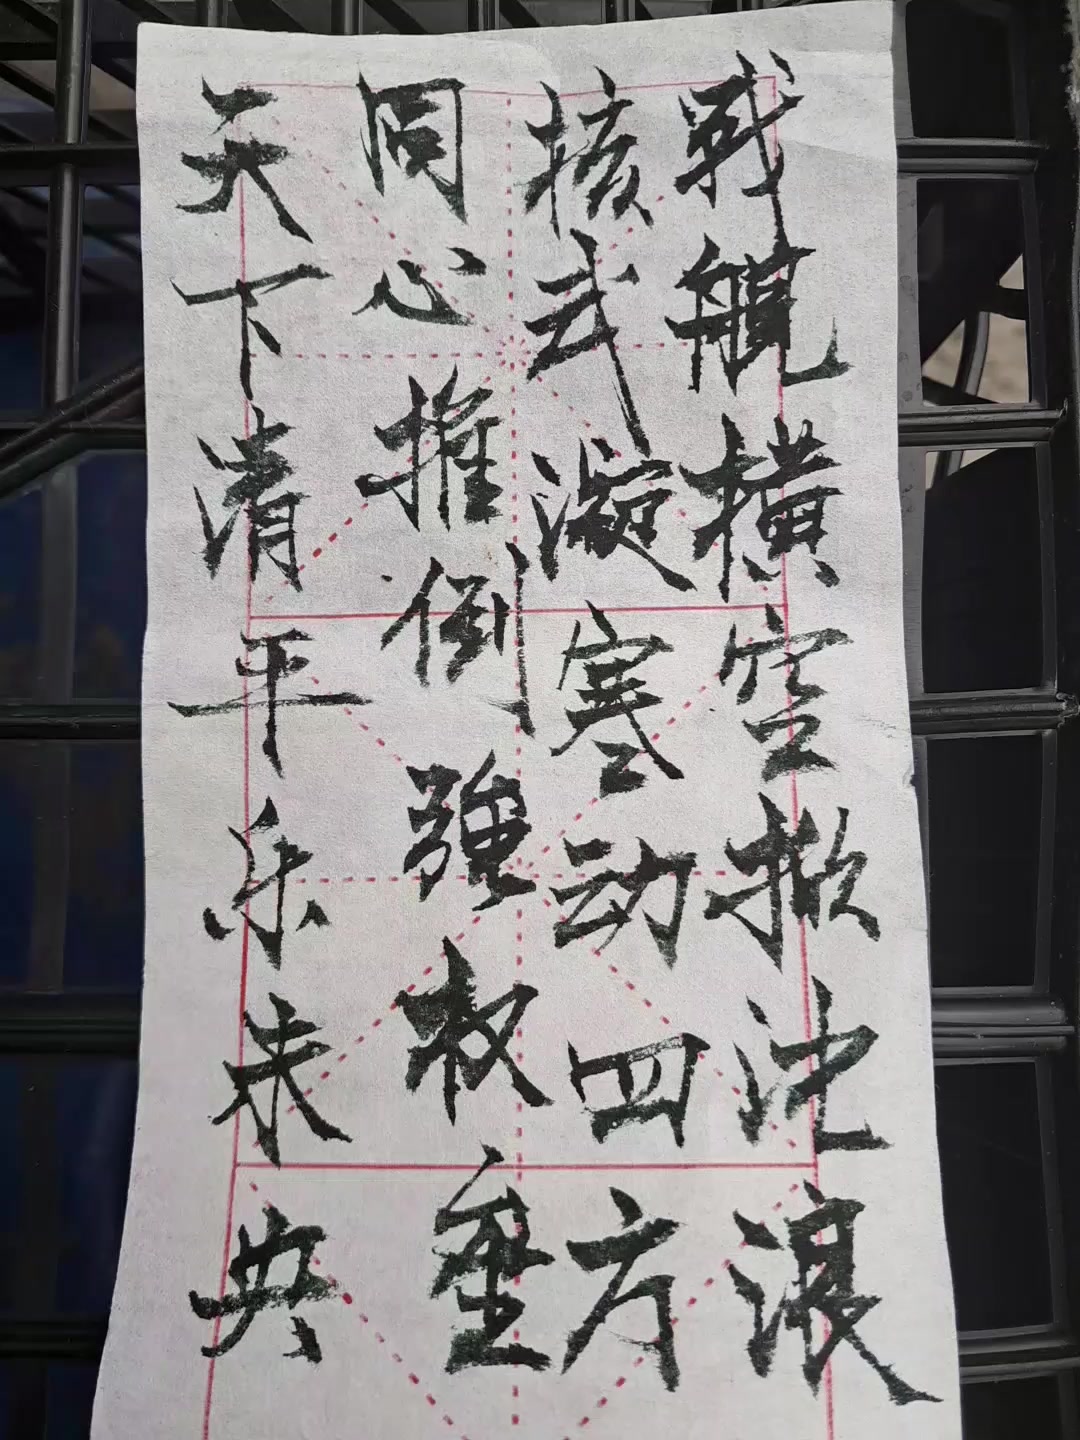 战舰横空掀沈浪
核武凝寒动四方
同心推倒强权
天下清平乐未央